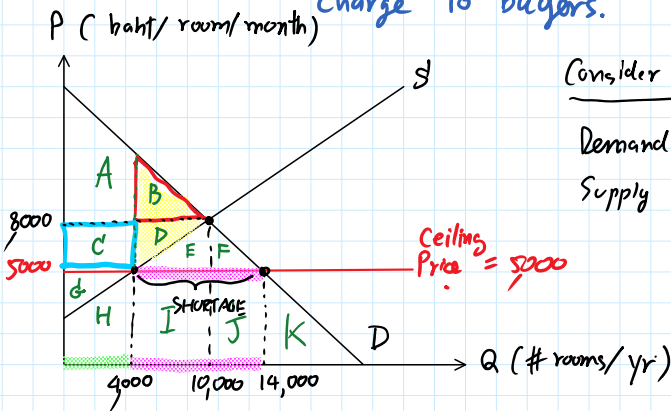 charge to buyers.
P ( baht/ room/ month)
S
Consider
Demand
Supply
A
B
8000
C
D
E
F
Ceiling
Price = 5000
5000
G
H
SHORTAGE
I
J
K
D
Q ( # rooms/ yr )
4,000
10,000
14,000